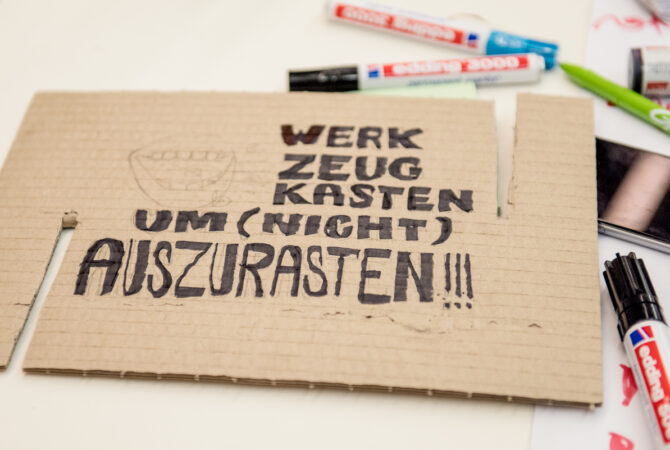 edding 3000
edding 3000
WERK
ZEUG
KASTEN
UM (NICHT)
AUSZURASTEN!!!
edding